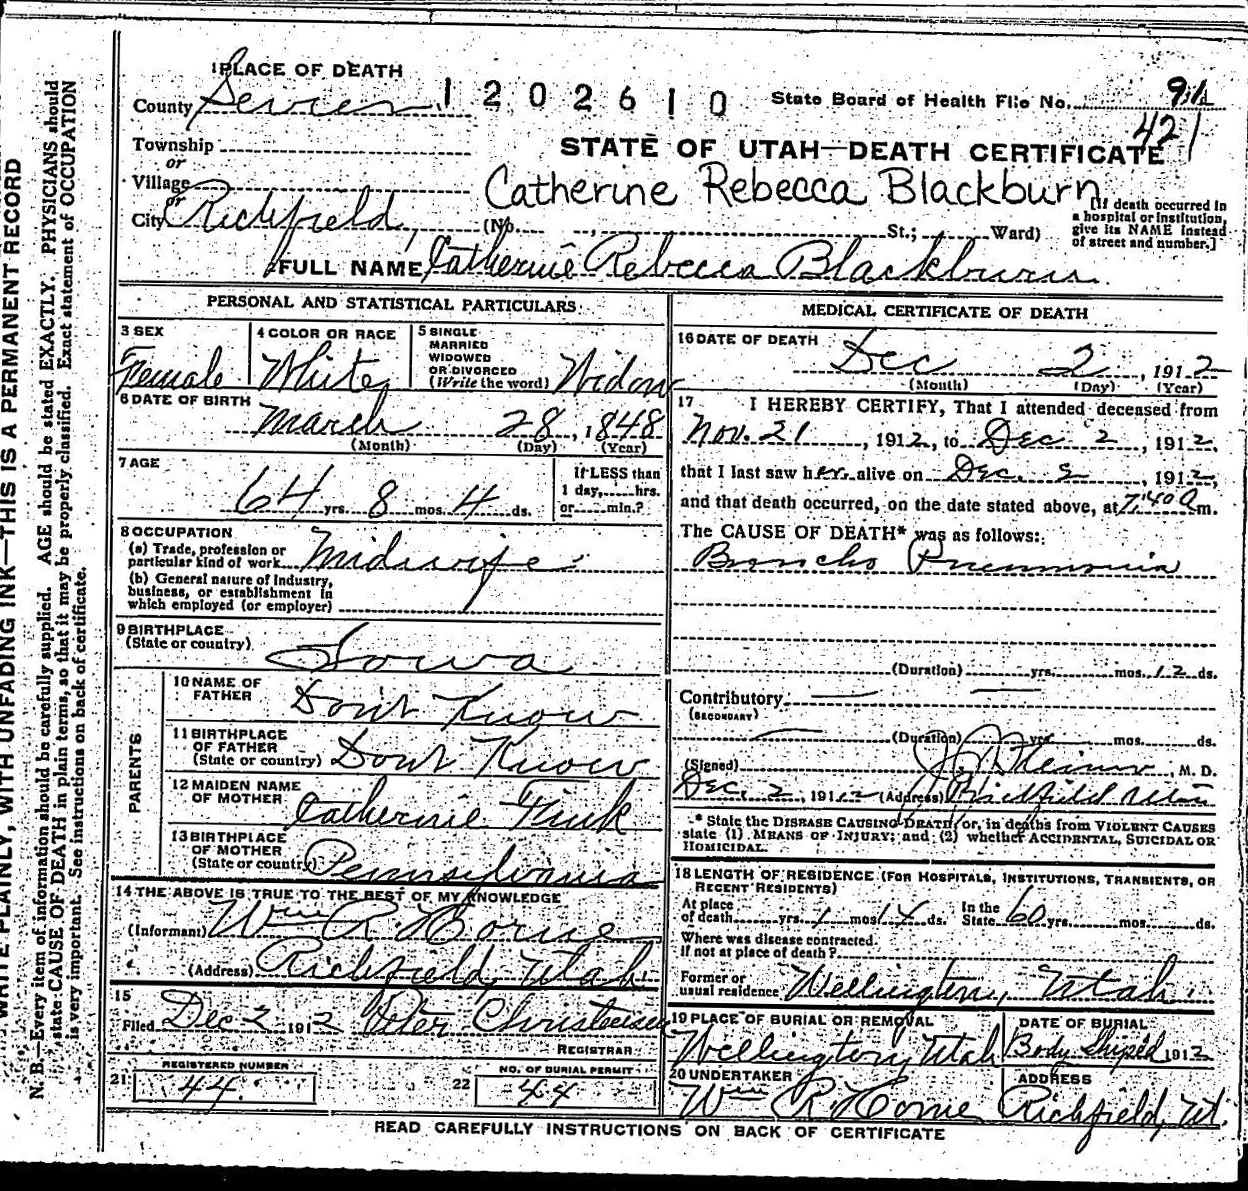 1 PLACE OF DEATH
County Sevier 1202610 State Board of Health File No. 
421
Township
STATE OF UTAH—DEATH CERTIFICATE
or
Village
Catherine Rebecca Blackburn
or
City Richfield, (No. , St.; Ward)
[If death occurred in
a hospital or institution,
give its NAME instead
of street and number.]
FULL NAME Catherine Rebecca Blackburn
PERSONAL AND STATISTICAL PARTICULARS
3 SEX
Female
4 COLOR OR RACE
White
5 SINGLE
MARRIED
WIDOWED
OR DIVORCED
(Write the word) Widow
6 DATE OF BIRTH
March 28, 1848
(Month) (Day) (Year)
7 AGE
64 yrs. 8 mos. 4 ds.
If LESS than
1 day,......hrs.
or......min.?
8 OCCUPATION
(a) Trade, profession or
particular kind of work Midwife
(b) General nature of industry,
business, or establishment in
which employed (or employer)
9 BIRTHPLACE
(State or country) Iowa
PARENTS
10 NAME OF
FATHER Don't Know
11 BIRTHPLACE
OF FATHER
(State or country) Dont Know
12 MAIDEN NAME
OF MOTHER Catherine Fink
13 BIRTHPLACE
OF MOTHER
(State or country) Pennsilvania
14 THE ABOVE IS TRUE TO THE BEST OF MY KNOWLEDGE
(Informant) Wm R. Horne
(Address) Richfield, Utah
15
Filed Dec 2 1912 Peter Christensen
REGISTRAR
21 REGISTERED NUMBER
44
22 NO. OF BURIAL PERMIT
44
MEDICAL CERTIFICATE OF DEATH
16 DATE OF DEATH
Dec 2, 1912
(Month) (Day) (Year)
17 I HEREBY CERTIFY, That I attended deceased from
Nov. 21, 1912, to Dec 2, 1912,
that I last saw her alive on Dec. 2, 1912,
and that death occurred, on the date stated above, at 7:40 a m.
The CAUSE OF DEATH* was as follows:
Broncho Pneumonia
(Duration) yrs. mos. 12 ds.
Contributory
(SECONDARY)
(Duration) yrs. mos. ds.
(Signed) , M. D.
Dec. 2, 1912 (Address) Richfield Utah
* State the DISEASE CAUSING DEATH, or, in deaths from VIOLENT CAUSES
state (1) MEANS OF INJURY; and (2) whether ACCIDENTAL, SUICIDAL OR
HOMICIDAL.
18 LENGTH OF RESIDENCE (FOR HOSPITALS, INSTITUTIONS, TRANSIENTS, OR
RECENT RESIDENTS)
At place
of death yrs. 1 mos. 14 ds. In the
State 60 yrs. mos. ds.
Where was disease contracted
if not at place of death?
Former or
usual residence Wellington, Utah
19 PLACE OF BURIAL OR REMOVAL
Wellington, Utah
DATE OF BURIAL
Body Shiped 1912
20 UNDERTAKER
Wm R. Horne
ADDRESS
Richfield, Ut.
READ CAREFULLY INSTRUCTIONS ON BACK OF CERTIFICATE
WRITE PLAINLY, WITH UNFADING INK—THIS IS A PERMANENT RECORD
N. B.—Every item of information should be carefully supplied. AGE should be stated EXACTLY. PHYSICIANS should
state CAUSE OF DEATH in plain terms, so that it may be properly classified. Exact statement of OCCUPATION
is very important. See instructions on back of certificate.